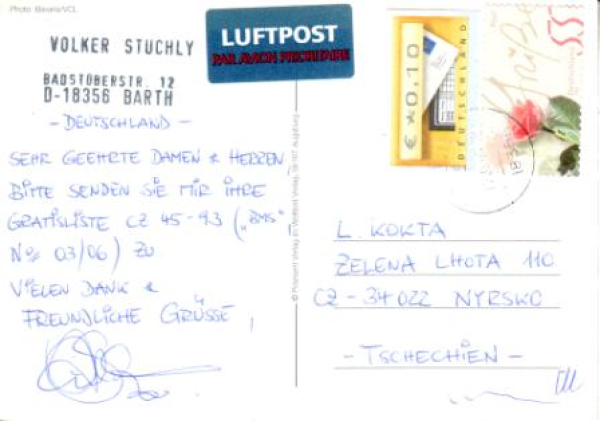 Photo: Bavaria/VCL
VOLKER STUCHLY
BADSTÜBERSTR. 12
D-18356 BARTH
- DEUTSCHLAND -
SEHR GEEHRTE DAMEN & HERREN
BITTE SENDEN SIE MIR IHRE
GRATISLISTE CZ 45-93 („BMS"
No 03/06) ZU
VIELEN DANK &
FREUNDLICHE GRÜSSE,
LUFTPOST
PAR AVION PRIORITAIRE
€ *0,10
DEUTSCHLAND
Grüße
55
Deutschland
L. KOKTA
ZELENA LHOTA 110
CZ-34022 NYRSKO
- TSCHECHIEN -